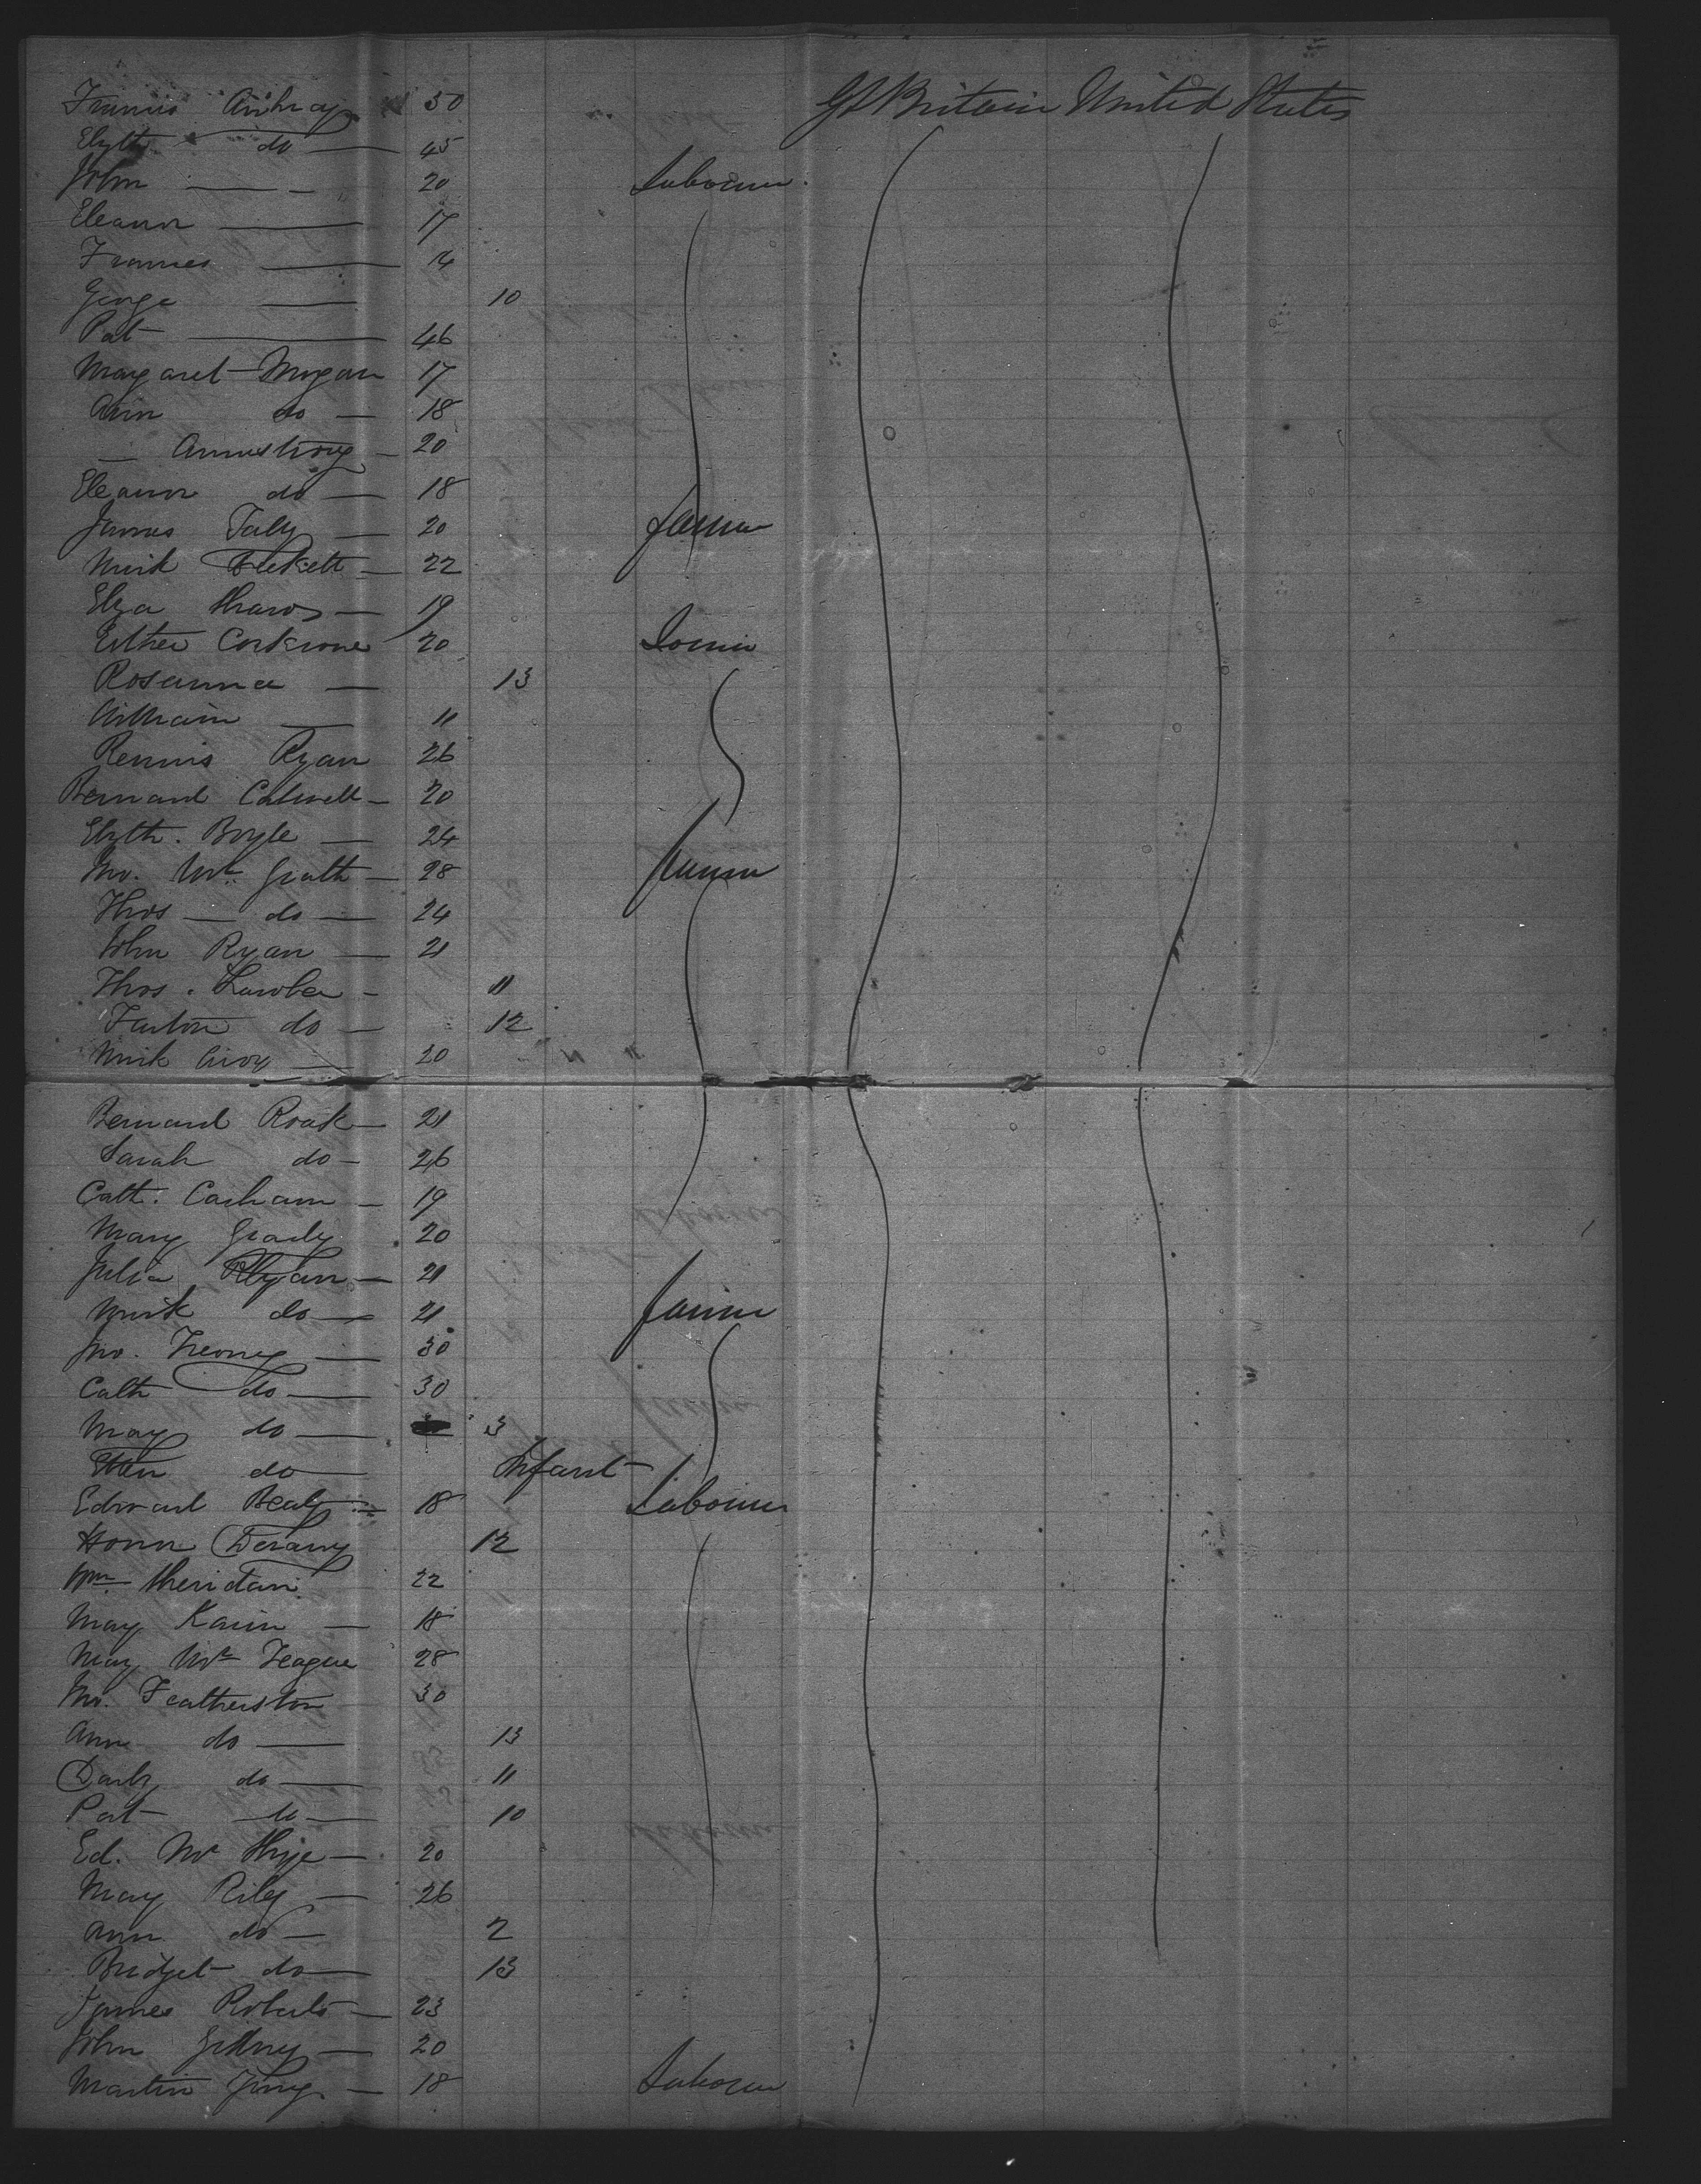 Francis 50 Gt Britain United States
Elyth do 45
John 20 Labourer
Eleanor 17
Frances 14
George 10
Pat 46
Margaret Morgan 17
Ann do 18
Armstrong 20
Eleanor do 18
James Taly 20 farmer
Mick 22
Elza 19
Esther 20
Rosanna 13
William 11
Rennis Ryan 26
Bernard 20
Elyth. Boyle 24
Jno. Mc Grath 28 farmer
Thos do 24
John Ryan 21
Thos. 11
do 12
Mick 20
Bernard Roak 21
Sarah do 26
Cath. 19
Mary Grady 20
Julia Ryan 21
Mick do 21 farmer
Jno. 30
Cath do 30
Mary do 3
Ellen do Infant
Edward Bealy 18 Labourer
Honor 12
Wm Sheridan 22
Mary 18
Mary Mc Teague 28
Jno. Featherston 30
Ann do 13
Darby do 11
Pat do 10
Ed. Mc 20
Mary Riley 26
Ann do 2
Bridget do 13
James Roberts 23
John 20
Martin 18 Labourer